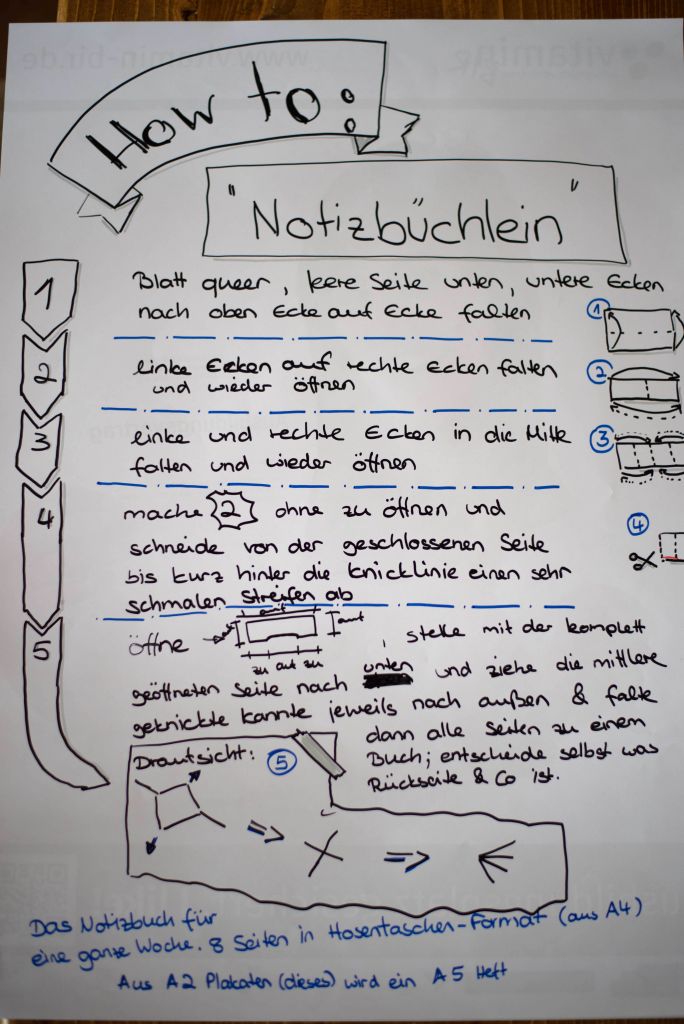 www.vitamin-bir.de
How to:
"Notizbüchlein"
1
Blatt queer, leere Seite unten, untere Ecken
nach oben Ecke auf Ecke falten
1
2
linke Ecken auf rechte Ecken falten
und wieder öffnen
2
3
linke und rechte Ecken in die Mitte
falten und wieder öffnen
3
4
mache 2 ohne zu öffnen und
schneide von der geschlossenen Seite
bis kurz hinter die knicklinie einen sehr
schmalen Streifen ab
4
5
öffne auf auf zu auf zu, stelle mit der komplett
geöffneten Seite nach unten und ziehe die mittlere
geknickte kannte jeweils nach außen & falte
dann alle Seiten zu einem
Buch; entscheide selbst was
Rückseite & Co ist.
Draufsicht: 5
Das Notizbuch für
eine ganze Woche. 8 Seiten in Hosentaschen-Format (aus A4)
Aus A2 Plakaten (dieses) wird ein A5 Heft